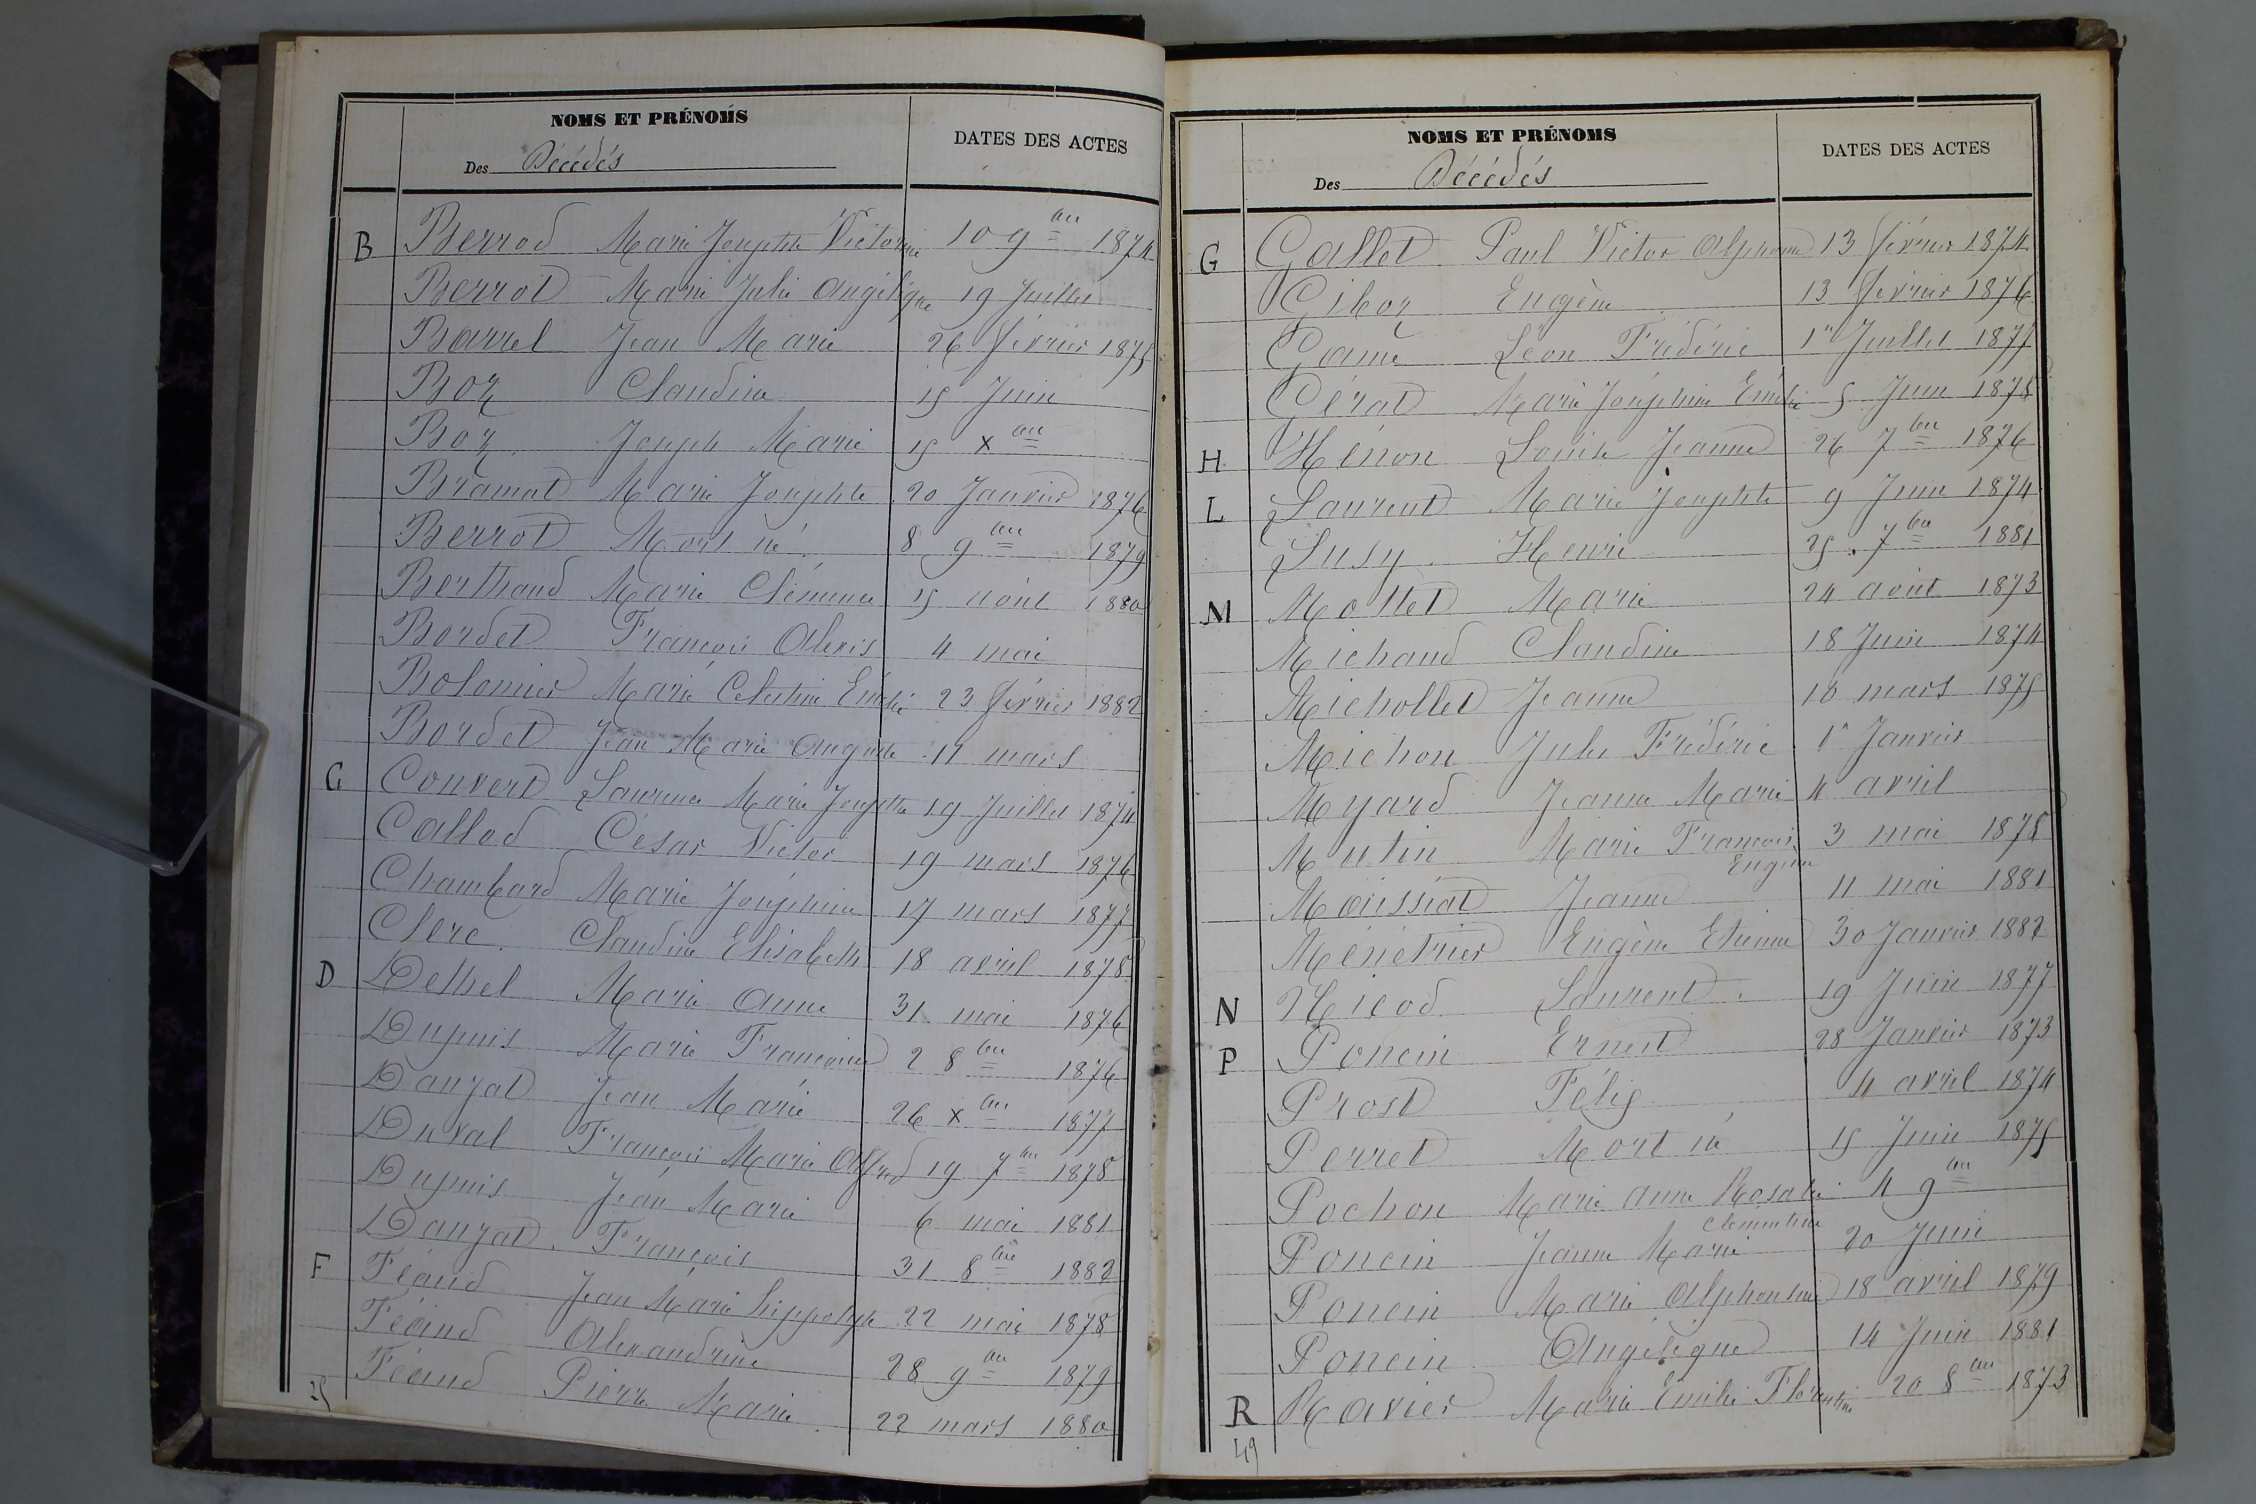 NOMS ET PRÉNOMS
Des Décédés
DATES DES ACTES
B Berrod Marie Josephte Victorine 10 9bre 1874
Berrot Marie Julie Angélique 19 Juillet
Barrel Jean Marie 26 février 1875
Boz Claudine 15 Juin
Boz Joseph Marie 15 xbre
Bramat Marie Josephte 20 Janvier 1876
Berrot Mort né 8 9bre 1879
Berthaud Marie Clémence 15 août 1880
Bordet François Alexis 4 mai
Bolomier Marie Celestine Emélie 23 février 1882
Bordet Jean Marie Auguste 11 mars
C Convert Laurence Marie Josephte 19 Juillet 1874
Callod César Victor 19 mars 1876
Chambard Marie Joséphine 17 mars 1877
Clerc Claudine Elisabeth 18 avril 1878
D Dethel Marie Anne 31 mai 1876
Dupuis Marie Françoise 2 8bre 1876
Danjat Jean Marie 26 xbre 1877
Duval François Marie Alfred 19 7bre 1878
Dupuis Jean Marie 6 mai 1881
Danjat François 31 8bre 1882
F Féaud Jean Marie hippolyte 22 mai 1878
Féaud Alexandrine 28 9bre 1879
Féaud Pierre Marie 22 mars 1880
25
NOMS ET PRÉNOMS
Des Décédés
DATES DES ACTES
G Gallet Paul Victor Alphonse 13 février 1874
Giboz Eugène 13 février 1876
Game Léon Frédéric 1er Juillet 1877
Gérat Marie Joséphine Emélie 5 Juin 1878
H Hénon Louise Jeanne 26 7bre 1876
L Laurent Marie Josephte 9 Juin 1874
Susy Henri 25 7bre 1881
M Mottet Marie 24 août 1873
Michaud Claudine 18 Juin 1874
Michollet Jeanne 10 mars 1875
Michon Jules Frédéric 1er Janvier
Myard Jeanne Marie 4 avril
Mutin Marie François Eugène 3 mai 1878
Moissiat Jeanne 11 mai 1881
Ménétrier Eugène Etienne 30 Janvier 1882
N Nicod Laurent 19 Juin 1877
P Poncin Ernest 28 Janvier 1873
Prost Félix 4 avril 1874
Perret Mort né 15 Juin 1875
Pochon Marie Anne Rosalie 4 9bre
Poncin Jeanne Marie Clementine 20 Juin
Poncin Marie Alphonsine 18 avril 1879
Poncin Angélique 14 Juin 1881
R Ravier Marie Emilie Florentine 20 8bre 1873
49